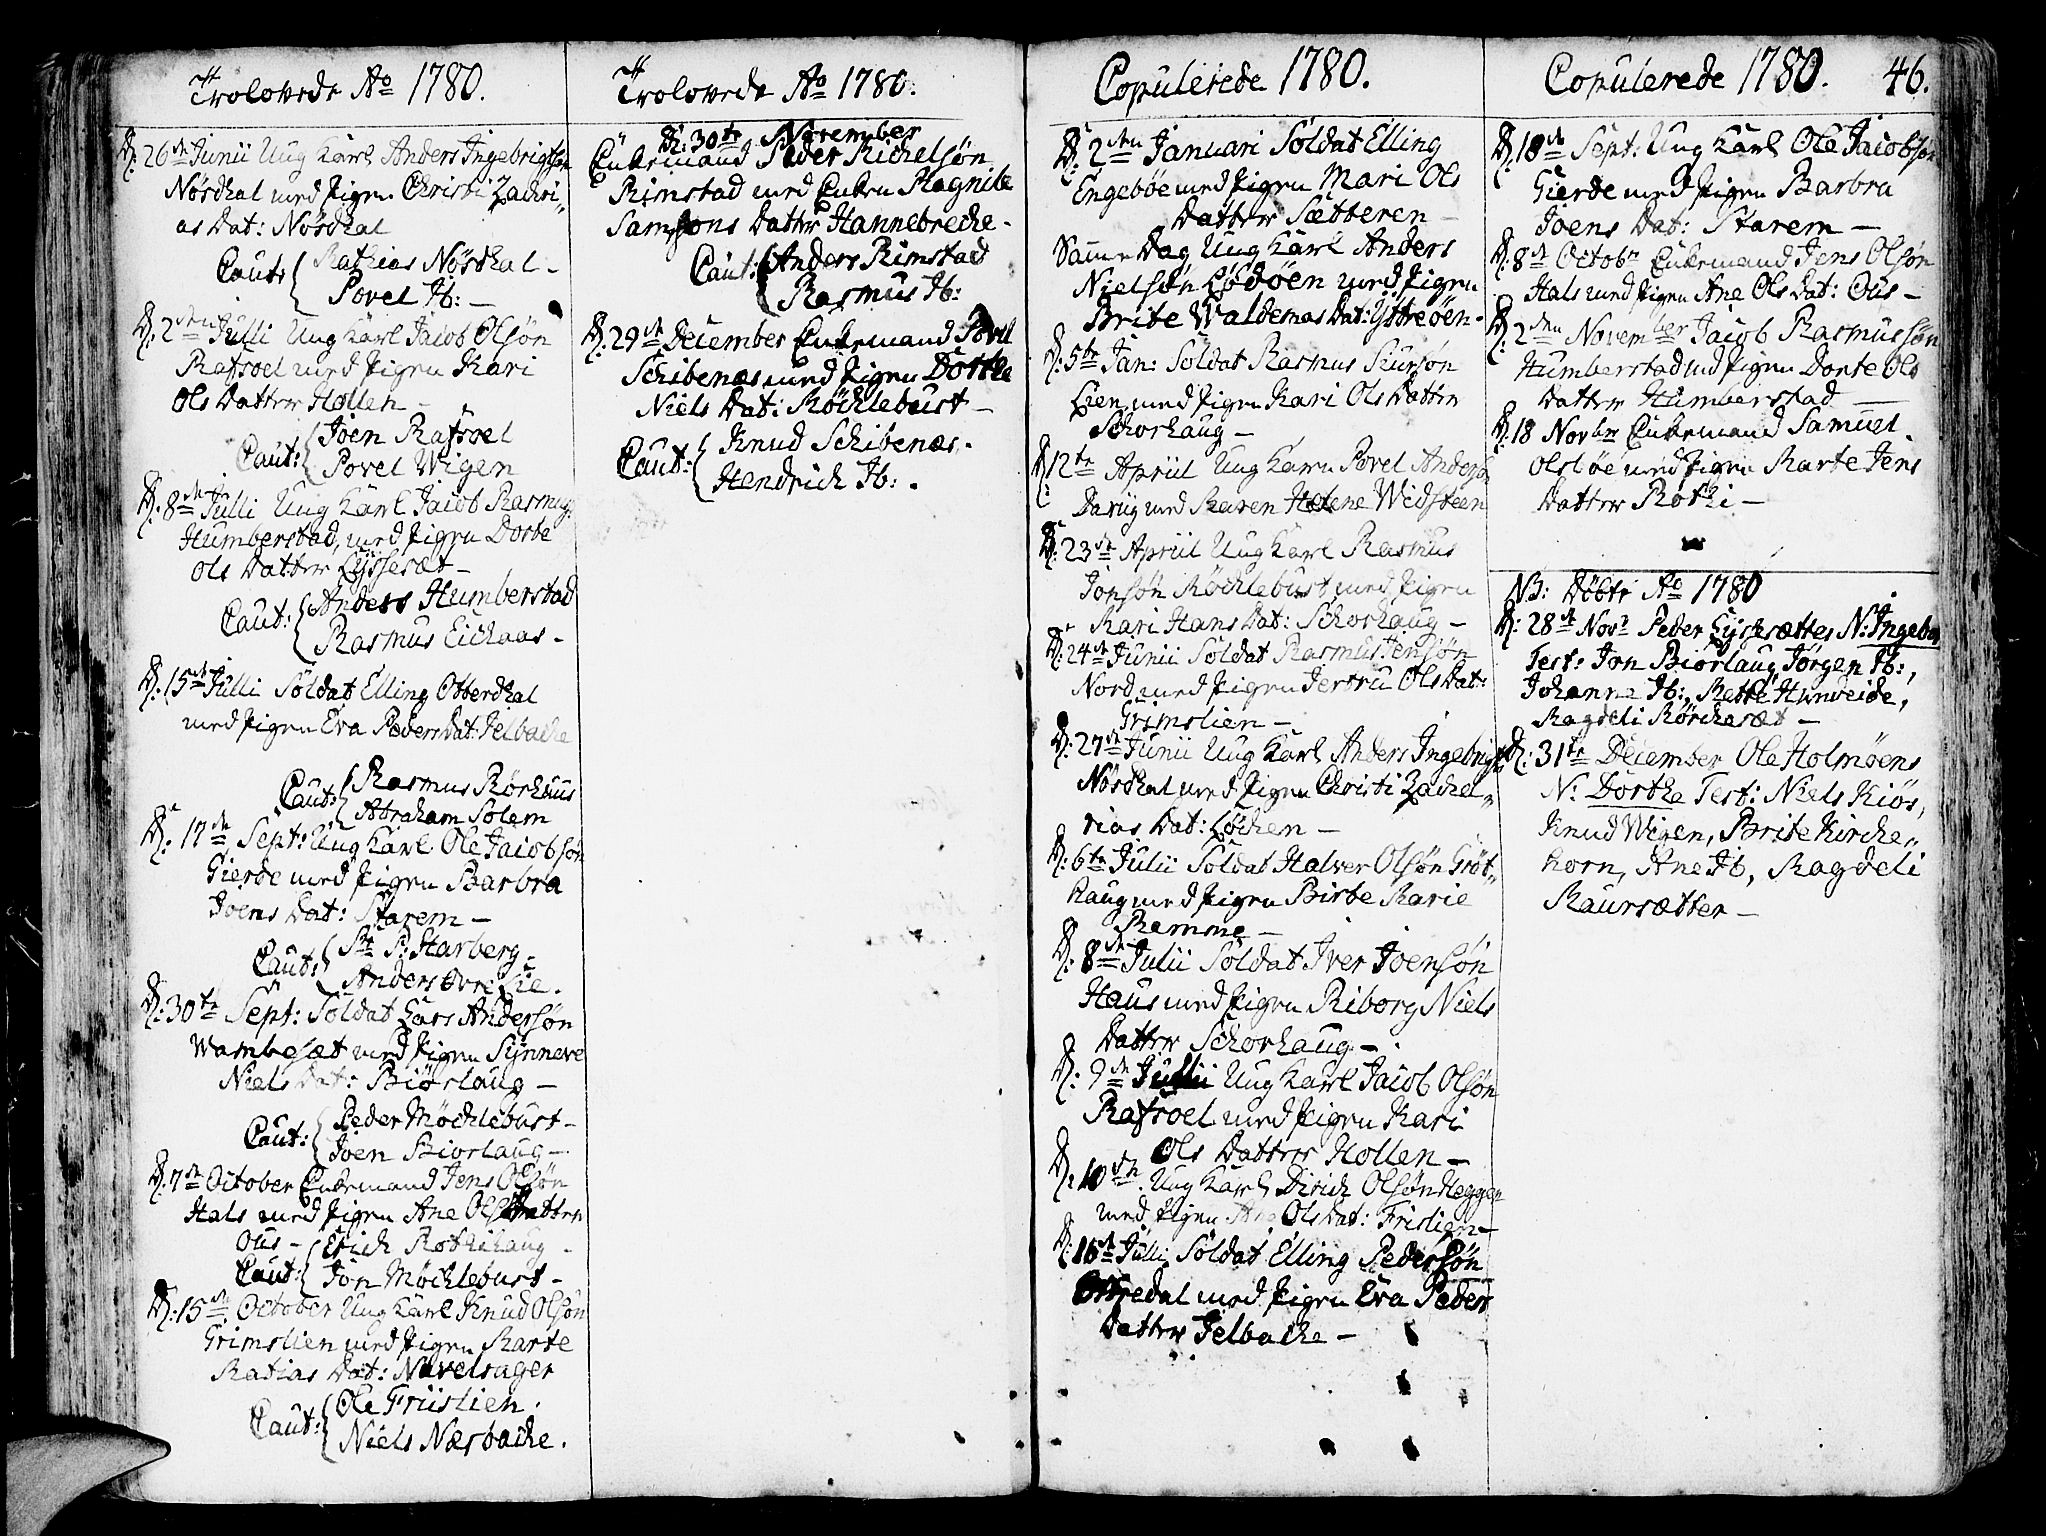 Trolovede Ao 1780.
D: 26de Junii Ung Karl Anders Ingebrigtsøn
Nøsdhal med Pigen Christi Zachri„
as Dat: Nøsdhal
Caut: { Mathias Nøsdhal –
Povel Ib: –
D: 2den Julii Ung Karl Jacob Olsøn
Rafsoel med Pigen Kari
Ols Datter Hollen –
Caut: { Joen Rafsoel
Povel Wigen
D: 8de Julii Ung Karl Jacob Rasmus:
Humberstad, med Pigen Dorte
Ols Datter Lyssesæt –
Caut: { Anders Humberstad
Rasmus Eichaas –
D: 15de Julii Soldat Elling Otterdhal
med Pigen Eva Peders Dat: Jelbache
Caut: { Rasmus Rørhuus
Abraham Solem
D: 17de Sept: Ung Karl Ole Jacobsøn
Gierde med Pigen Barbra
Joens Dat: Starem –
Caut: { Sr P: Harberg –
Anders Øvre Lie.
D: 30te Sept: Soldat Lars Andersøn
Wambesæt med Pigen Synneve
Niels Dat: Biørlaug –
Caut: { Peder Møchlebust –
Joen Biorlaug –
D: 7de October Enkemand Jens Olsøn
Hals med Pigen Ane Ols Datter
Ous –
Caut: { Erich Rothihaug –
Jon Møchlebust –
D: 15de October Ung Karl Knud Olsøn
Grimslien med Pigen Marte
Matias Dat: Navelsager
Caut: { Ole Friislien.
Niels Næsbache.
Trolovede Ao 1780.
D: 30te November
Enkemand Peder Michelsøn
Rimstad med Enken Magnile
Samsons Datter Hannebreche –
Caut: { Anders Rimstad
Rasmus Ib:
D: 29de December Enkemand Povel
Schibenæs med Pigen Dorthe
Niels Dat: Møchlebust –
Caut: { Knud Schibenæs.
Hendrich Ib: .
Copulerede 1780.
D: 2den Januari Soldat Elling
Engebøe med Pigen Mari Ols
Datter Sætteren –
Samme Dag Ung Karl Anders
Nielsøn Lødøen med Pigen
Brite Waldemas Dat: Ytreøen –
D: 5te Jan: Soldat Rasmus
Lien med Pigen Kari Ols Datter
Schorhaug –
D: 12te Apriil Ung Karn Povel Andersøn
med Maren Helene Widsteen
D: 23de Apriil Ung Karl Rasmus
Jonsøn Møchlebust med Pigen
Kari Hans Dat: Schorhaug –
D: 24de Junii Soldat Rasmus Jensøn
Nord med Pigen Jertru Ols Dat:
Grimslien –
D: 27de Junii Ung Karl Anders Ingebrigts:
Nøsdhal med Pigen Christi Zachel„
rias Dat: Løchen –
D: 6te Julii Soldat Halver Olsøn Grøt„
haug med Pigen Birte Marie
Ramme –
D: 8de Julii Soldat Iver Joensøn
Haus med Pigen Riborg Niels
Datter Schorhaug –
D: 9de Julii Ung Karl Jacob Olsøn
Rafsoel med Pigen Kari
Ols Datter Hollen –
D: 10de Ung Karl Dirich Olsøn Heggen
med Pigen Ane Ols Dat: Frislien –
D: 16de Julii Soldat Elling Pedersøn
Ottredal med Pigen Eva Peders
Datter Jelbache –
Copulerede 1780. 46.
D: 18de Sept: Ung Karl Ole Jacobsøn
Gierde med Pigen Barbra
Joens Dat: Starem –
D: 8de Octobr Enkemand Jens Olsøn
Hals med Pigen Ane Ols Dat: Ous –
D: 2den November Jacob Rasmussøn
Humberstad med Pigen Dorte Ols
Datter Humberstad –
D: 18 Novbr Enkemand Samuel
Olsbøe med Pigen Marte Jens
Datter Rothi –
NB: Døbte Ao 1780
D: 28de Novr Peder Lyssesættes N: Ingebor
Test: Jon Biorlaug Jørgen Ib:,
Johanne Ib:, Mette Hunveide,
Magdeli Mørchesæt –
D: 31te December Ole Holmøens
N: Dorthe Test: Niels Kiøs,
Knud Wigen, Brite Kirche„
horn, Ane Ib, Magdeli
Maursætter –